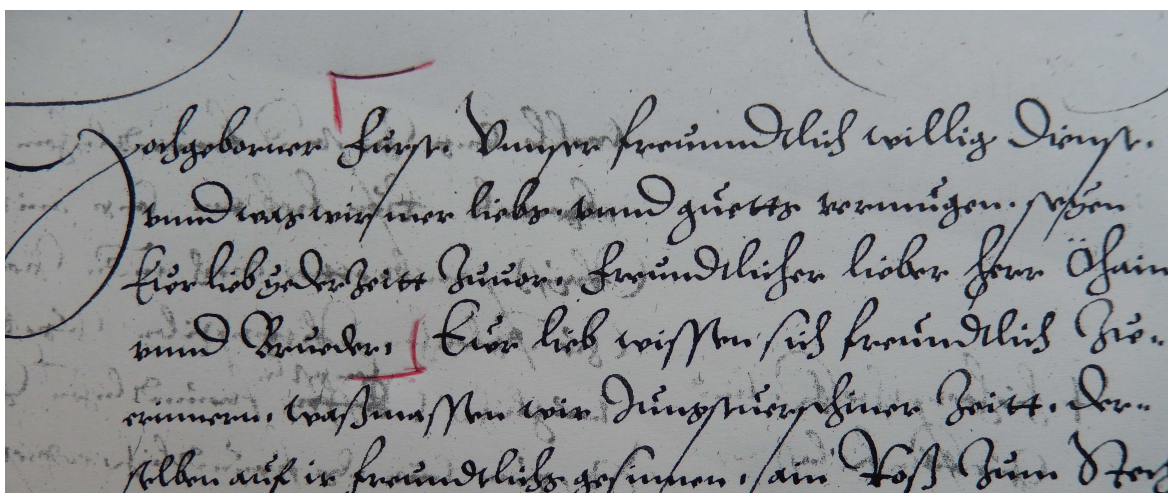 Hochgeborner Furst. Vnnser freunndtlich willig Dienst.
vnnd was wir mer liebs. vnnd guetts vermügen. seyen
Eur lieb yederzeitt Zuuor. freundtlicher lieber herr Öhaim
vnnd Brueder. Eur lieb wissen sich freundtlich Zue„
erinnern. waßmassen wir Jungstuerschiner Zeitt. der„
selben auf ir freundtlichs gesinnen. ain Roß Zum Stech